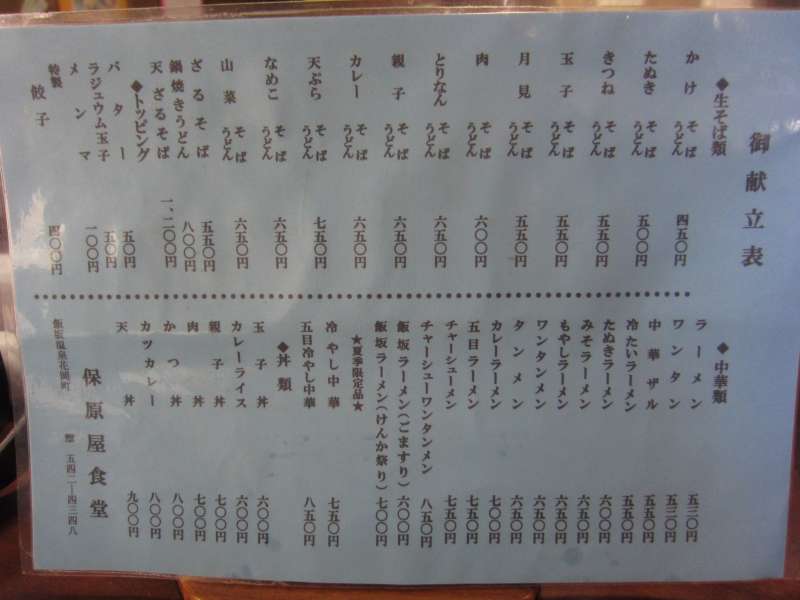 御献立表
◆生そば類
かけ そば うどん 四五〇円
たぬき そば うどん 五〇〇円
きつね そば うどん 五五〇円
玉子 そば うどん 五五〇円
月見 そば うどん 五五〇円
肉 そば うどん 六〇〇円
とりなん そば うどん 六五〇円
親子 そば うどん 六五〇円
カレー そば うどん 六五〇円
天ぷら そば うどん 七五〇円
なめこ そば うどん 六五〇円
山菜 そば うどん 六五〇円
ざるそば 五五〇円
鍋焼きうどん 八〇〇円
天ざるそば 一、二〇〇円
◆トッピング
バター 五〇円
ラジュウム玉子 五〇円
メンマ 一〇〇円
特製 餃子 四〇〇円
◆中華類
ラーメン 五三〇円
ワンタン 五三〇円
中華ザル 五五〇円
冷たいラーメン 五五〇円
たぬきラーメン 六〇〇円
みそラーメン 六五〇円
もやしラーメン 六五〇円
ワンタンメン 六五〇円
タンメン 六五〇円
カレーラーメン 七〇〇円
五目ラーメン 七五〇円
チャーシューメン 七五〇円
チャーシューワンタンメン 八五〇円
飯坂ラーメン(ごますり) 六〇〇円
飯坂ラーメン(けんか祭り) 七〇〇円
★夏季限定品★
冷やし中華 七五〇円
五目冷やし中華 八五〇円
◆丼類
玉子丼 六〇〇円
カレーライス 六〇〇円
親子丼 七〇〇円
肉丼 七〇〇円
かつ丼 八〇〇円
カツカレー 八〇〇円
天丼 九〇〇円
保原屋食堂
飯坂温泉花岡町
☎ 五四二―四三四八